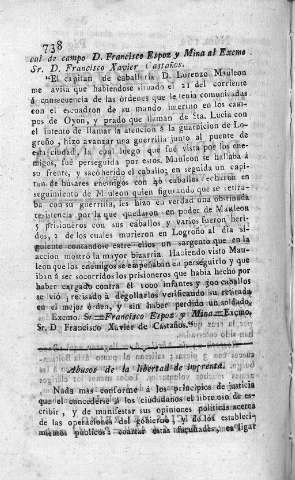 738
cal de campo D. Francisco Espoz y Mina al Excmo.
Sr. D. Francisco Xavier Castaños.
"El capitan de caballería D. Lorenzo Mauleon
me avisa que habiendose situado el 21 del corriente
á consecuencia de las órdenes que le tenia comunicadas
con el escuadron de su mando interino en los cam-
pos de Oyon, y prado que llaman de Sta. Lucia con
el intento de llamar la atencion á la guarnicion de Lo-
groño, hizo avanzar una guerrilla junto al puente de
esta ciudad, la cual luego que fué vista por los ene-
migos, fué perseguida por estos. Mauleon se hallaba á
su frente, y socorrido el caballo, en seguida un capi-
tan de husares enemigos con 40 caballos echaron en
seguimiento de Mauleon quien figurando que se retira-
ba con su guerrilla, les hizo en verdad una obstinada
resistencia por la que quedaron en poder de Mauleon
5 prisioneros con sus caballos y varios fueron heri-
dos, 2 de los cuales murieron en Logroño al dia si-
guiente contandose entre ellos un sargento que en la
accion mostró la mayor bizarria. Haciendo visto Mau-
leon que los enemigos se empeñaban en perseguirlo y que
iban á ser socorridos los prisioneros que habia hecho por
haber cargado contra él 1000 infantes y 300 caballos
se vió precisado á degollarlos verificando su retirada
en el mejor órden, y sin haber perdido un soldado.
Excmo. Sr. = Francisco Espoz y Mina = Excmo.
Sr. D. Francisco Xavier de Castaños."
Abusos de la libertad de imprenta.
Nada mas conforme á los principios de justicia
que el concederse á los ciudadanos el libre uso de es-
cribir, y de manifestar sus opiniones políticas acerca
de las operaciones del gobierno y de los estableci-
mientos públicos: coartar estas facultades, es ligar